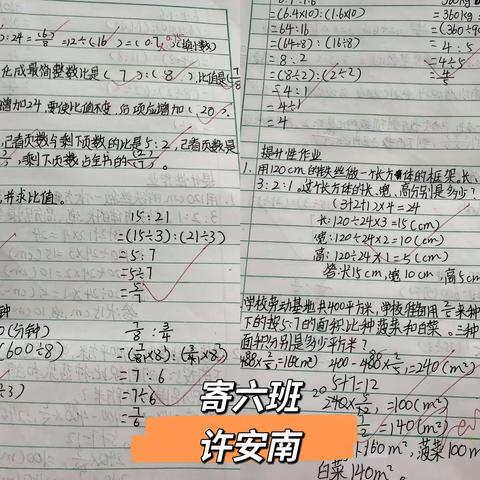 ):24=(16/8)=12÷(16)=(0.75)(填小数)
化成最简整数比是(7):(8),比值是(7/8
增加24,要使比值不变,后项应增加(20)。
已看页数与剩下页数的比是5:2,已看页数是
),剩下页数占全书的(2/7)。
并求比值。
15:21
=(15÷3):(21÷3)
=5:7
=5÷7
=5/7
(分钟)
(600÷8)
÷3)
7/8:3/4
=(7/8×8):(3/4×8)
=7:6
=7÷6
=7/6
=(6.4×10):(1.6×10)
=64:16
=(64÷8):(16÷8)
=8:2
=(8÷2):(2÷2)
=4:1
=4÷1
=4
=360kg:
=(360÷90
=4:5
=4÷5
=4/5
提升性作业
1.用120cm的铁丝做一个长方体的框架,长、
3:2:1。这个长方体的长、宽、高分别是多少?
(3+2+1)×4=24
长:120÷24×3=15(cm)
宽:120÷24×2=10(cm)
高:120÷24×1=5(cm)
答:长15cm,宽10cm,高5cm
学校劳动基地共400平方米,学校准备用2/5来种
下的按5:7的面积比种菠菜和白菜。三种
面积分别是多少平方米?
400-400×2/5=240(m²)
5+7=12
240×5/12=100(m²)
=140(m²)
160m²,菠菜100m
白菜140m²。
寄六班
许安南